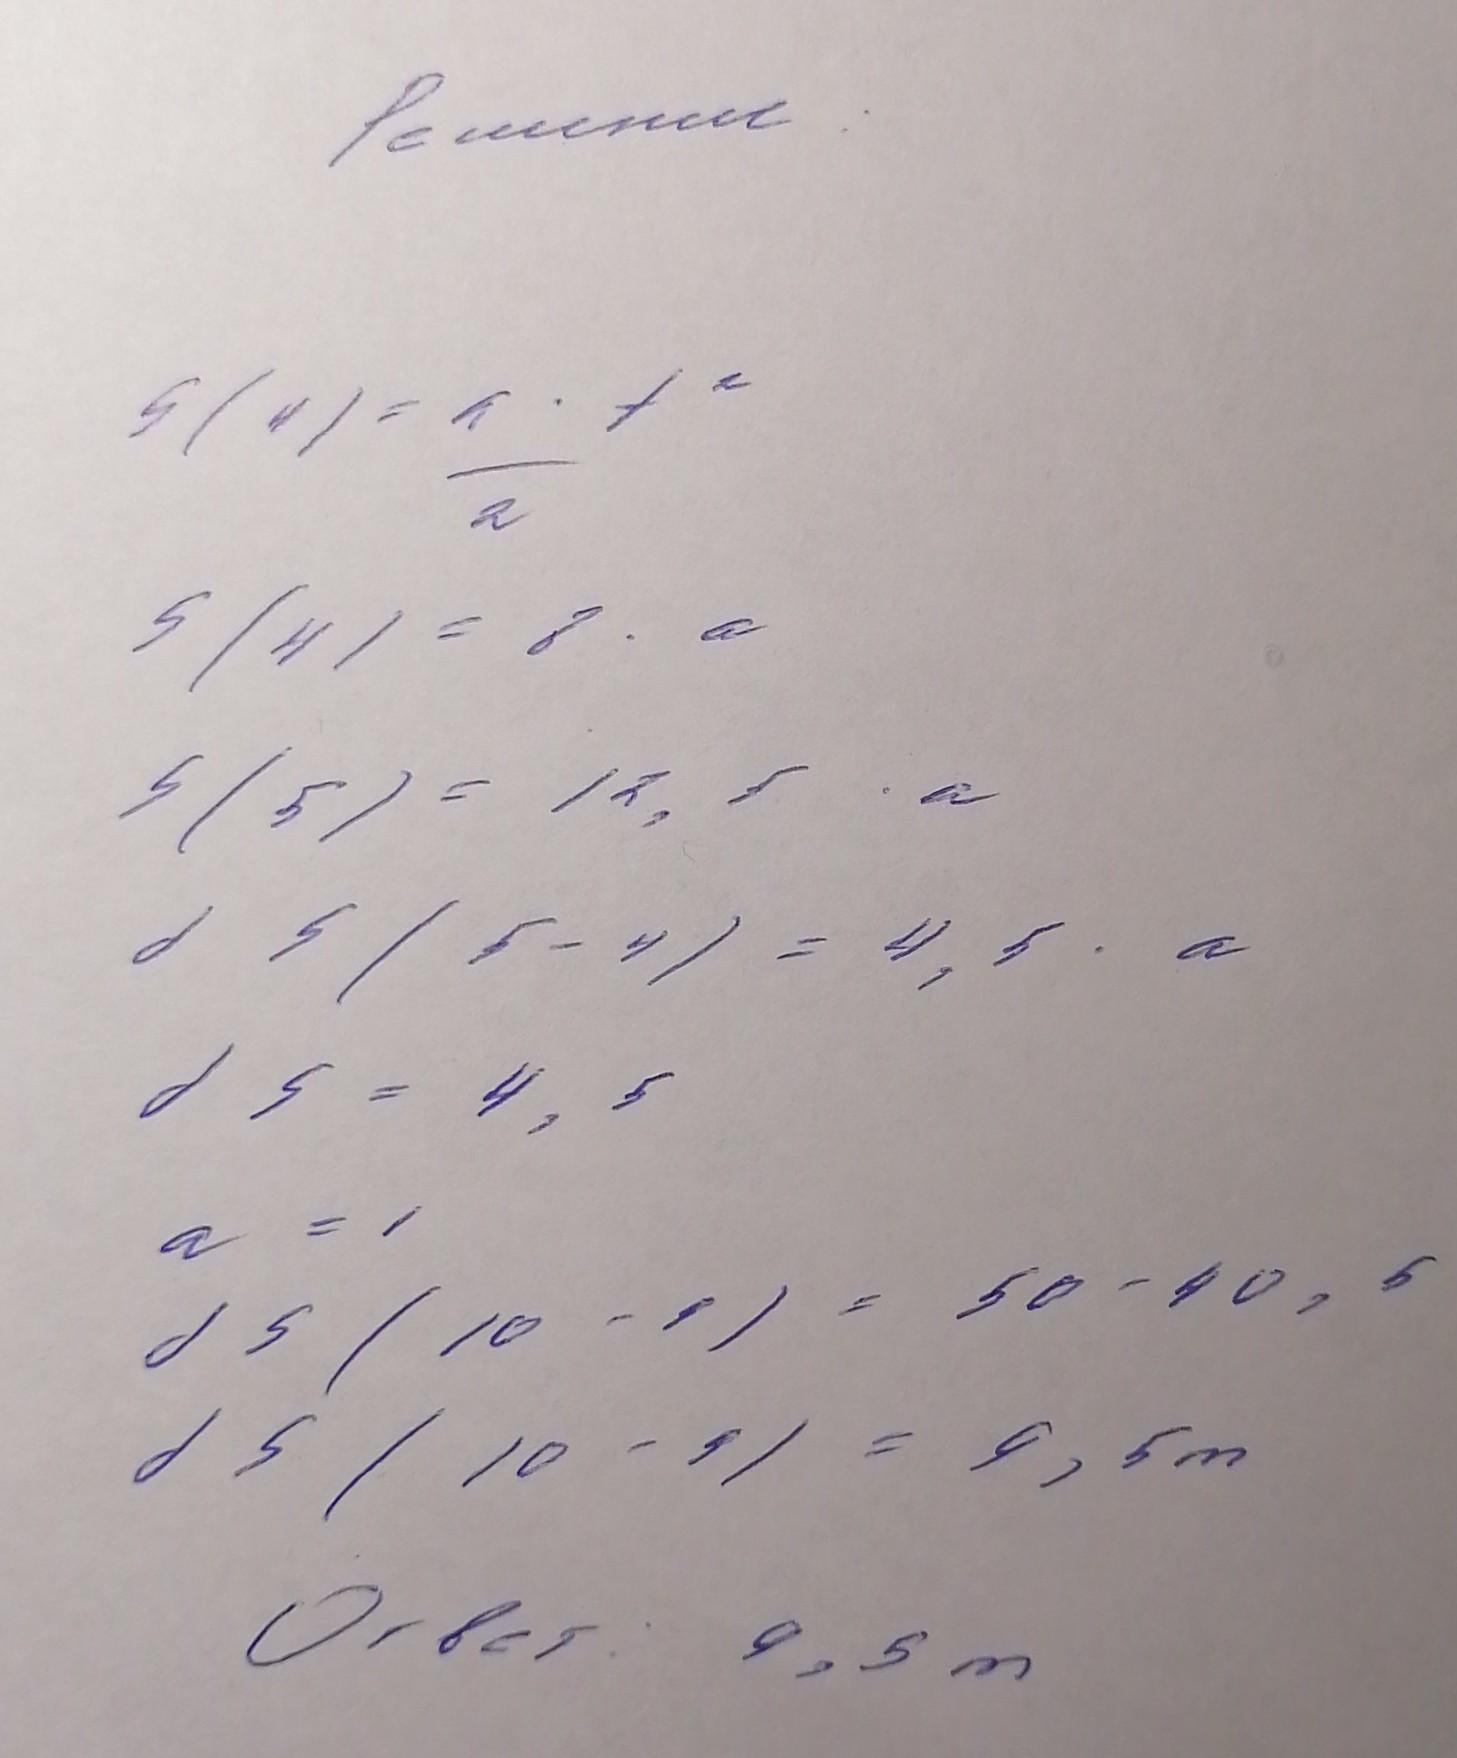 Решение:
S(4) = a · t²
2
S(4) = 8 · a
S(5) = 12,5 · a
d S(5-4) = 4,5 · a
d S = 4,5
a = 1
d S(10-9) = 50-40,5
d S(10-9) = 9,5m
Ответ: 9,5m